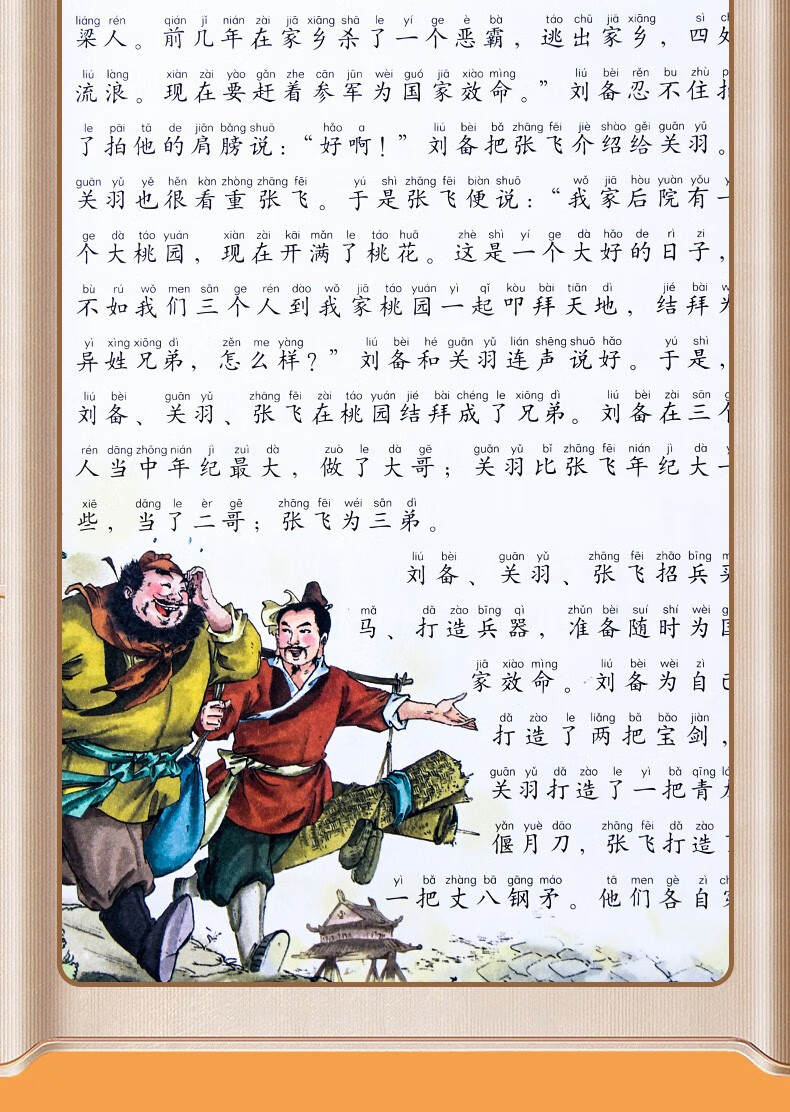 liáng rén qián jǐ nián zài jiā xiāng shā le yí ge è bà táo chū jiā xiāng sì
梁人。前几年在家乡杀了一个恶霸，逃出家乡，四处
liú làng xiàn zài yào gǎn zhe cān jūn wèi guó jiā xiào mìng liú bèi rěn bu zhù
流浪。现在要赶着参军为国家效命。”刘备忍不住拍
le pāi tā de jiān bǎng shuō hǎo a liú bèi bǎ zhāng fēi jiè shào gěi guān yǔ
了拍他的肩膀说：“好啊！”刘备把张飞介绍给关羽。
guān yǔ yě hěn kàn zhòng zhāng fēi yú shì zhāng fēi biàn shuō wǒ jiā hòu yuàn yǒu
关羽也很看重张飞。于是张飞便说：“我家后院有一
ge dà táo yuán xiàn zài kāi mǎn le táo huā zhè shì yí ge dà hǎo de rì zi
个大桃园，现在开满了桃花。这是一个大好的日子，
bù rú wǒ men sān ge rén dào wǒ jiā táo yuán yì qǐ kòu bài tiān dì jié bài
不如我们三个人到我家桃园一起叩拜天地，结拜为
yì xìng xiōng dì zěn me yàng liú bèi hé guān yǔ lián shēng shuō hǎo yú shì
异姓兄弟，怎么样？”刘备和关羽连声说好。于是，
liú bèi guān yǔ zhāng fēi zài táo yuán jié bài chéng le xiōng dì liú bèi zài sān
刘备、关羽、张飞在桃园结拜成了兄弟。刘备在三个
rén dāng zhōng nián jì zuì dà zuò le dà gē guān yǔ bǐ zhāng fēi nián jì dà
人当中年纪最大，做了大哥；关羽比张飞年纪大一
xiē dāng le èr gē zhāng fēi wéi sān dì
些，当了二哥；张飞为三弟。
liú bèi guān yǔ zhāng fēi zhāo bīng
刘备、关羽、张飞招兵买
mǎ dǎ zào bīng qì zhǔn bèi suí shí wèi
马、打造兵器，准备随时为国
jiā xiào mìng liú bèi wèi zì
家效命。刘备为自己
dǎ zào le liǎng bǎ bǎo jiàn
打造了两把宝剑，
guān yǔ dǎ zào le yì bǎ qīng
关羽打造了一把青龙
yǎn yuè dāo zhāng fēi dǎ zào
偃月刀，张飞打造了
yì bǎ zhàng bā gāng máo tā men gè zì
一把丈八钢矛。他们各自